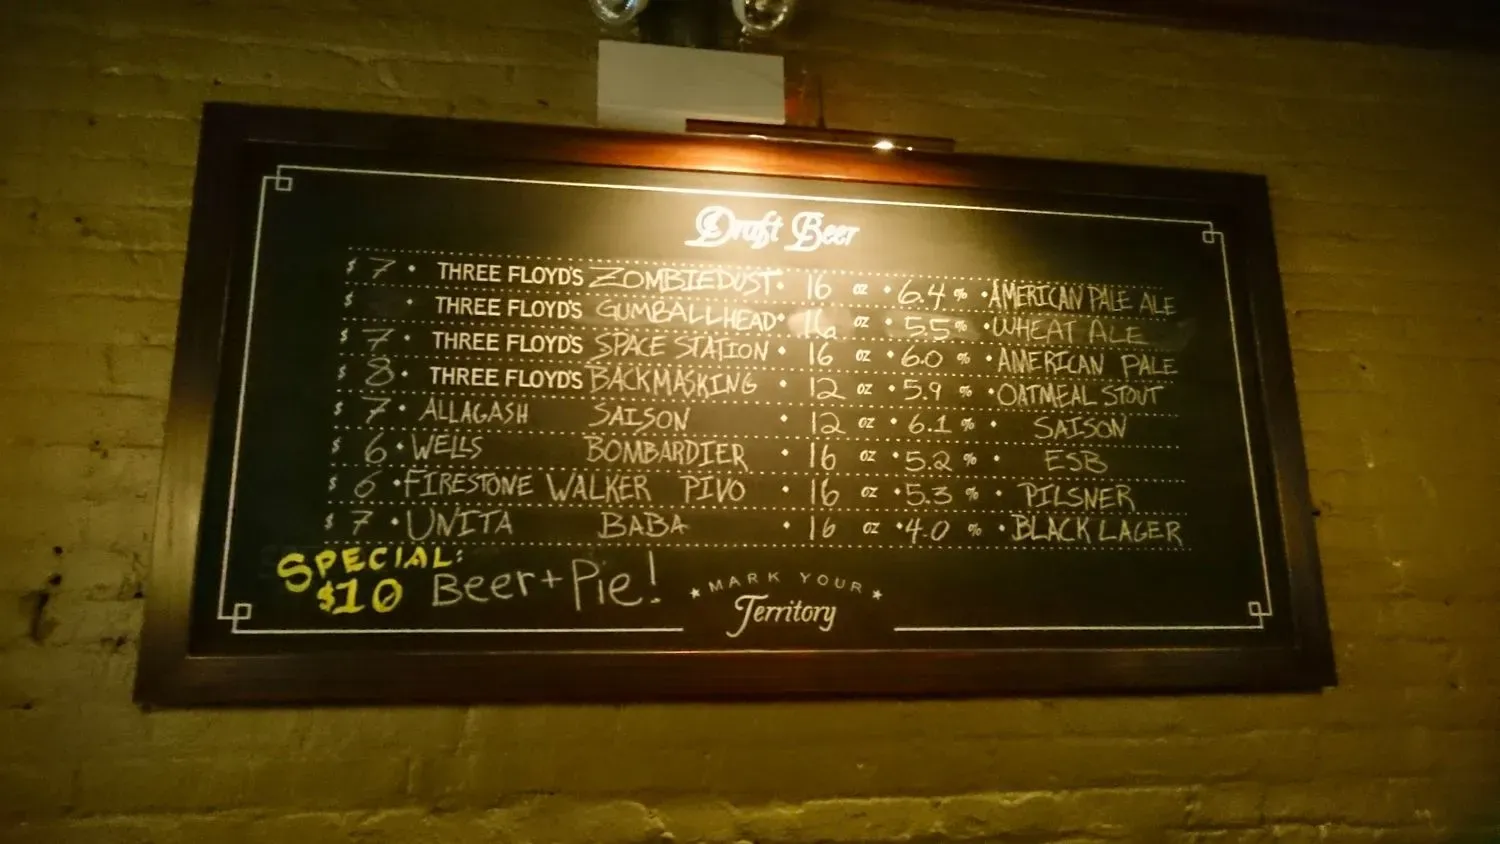 Draft Beer
$ 7 • THREE FLOYD'S ZOMBIEDUST • 16 oz • 6.4 % • AMERICAN PALE ALE
$ • THREE FLOYD'S GUMBALLHEAD • oz • 5.5 % • WHEAT ALE
$ 7 • THREE FLOYD'S SPACE STATION • 16 oz • 6.0 % • AMERICAN PALE
$ 8 • THREE FLOYD'S BACKMASKING • 12 oz • 5.9 % • OATMEAL STOUT
$ 7 • ALLAGASH SAISON • 12 oz • 6.1 % • SAISON
$ 6 • WELLS BOMBARDIER • 16 oz • 5.2 % • ESB
$ 6 • FIRESTONE WALKER PIVO • 16 oz • 5.3 % • PILSNER
$ 7 • UNITA BABA • 16 oz • 4.0 % • BLACK LAGER
SPECIAL:
$10 Beer + Pie!
★ MARK YOUR ★
Territory